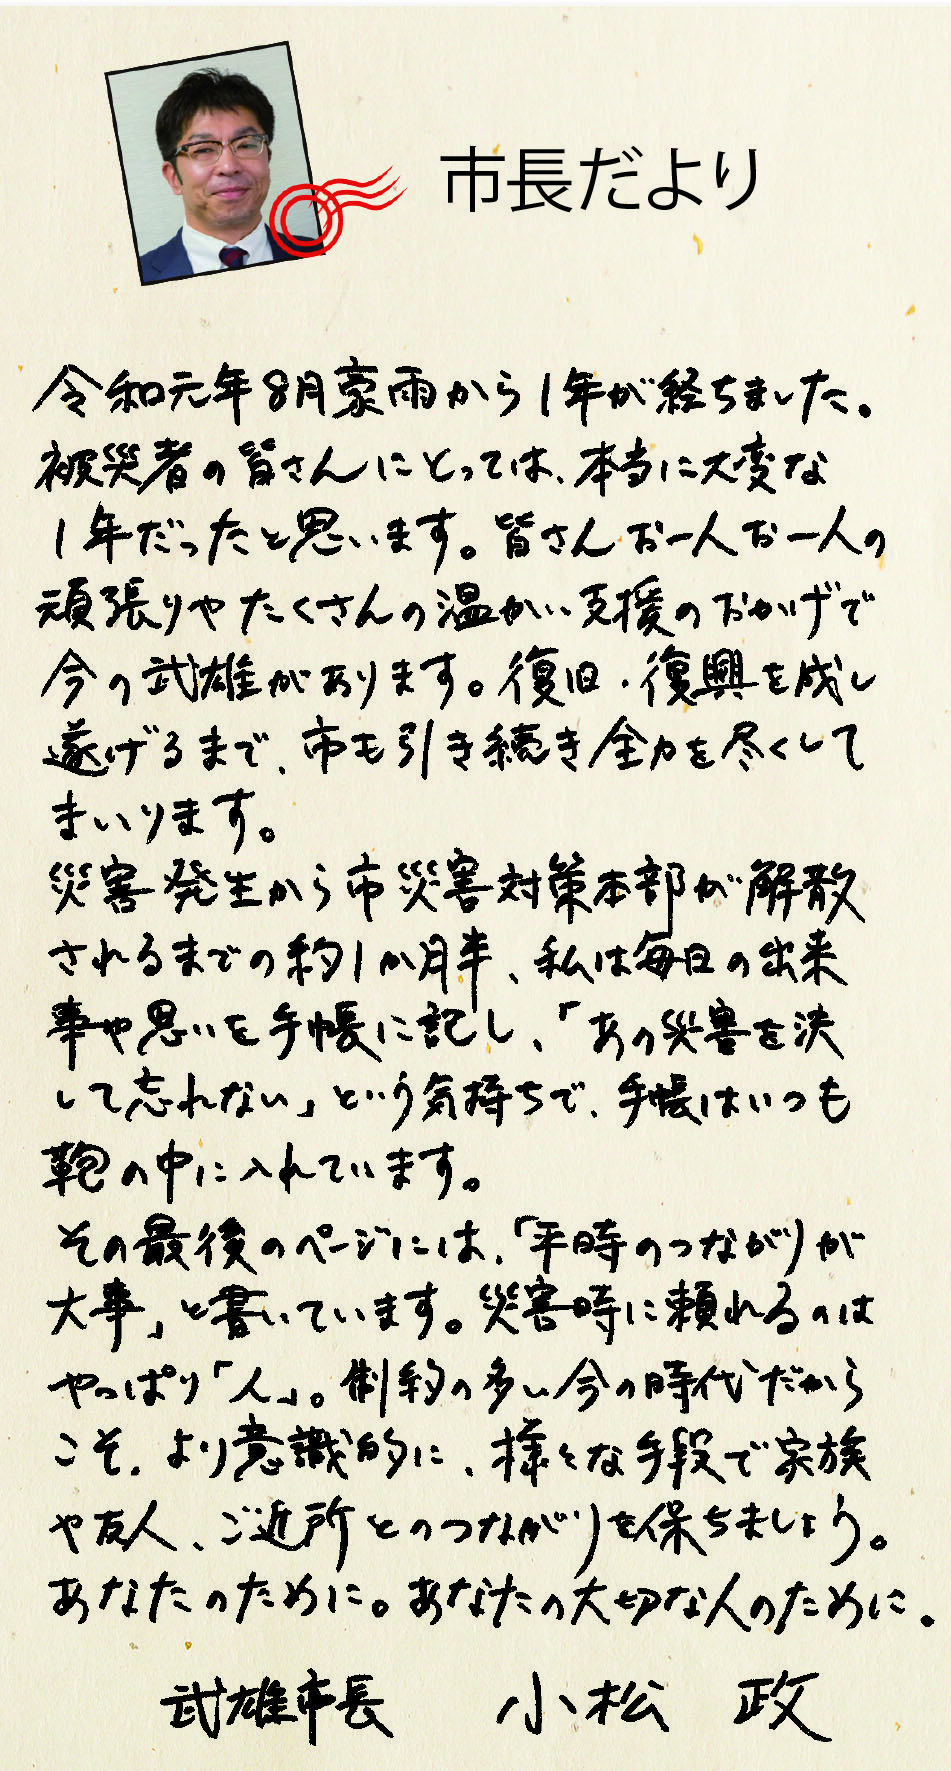 市長だより
令和元年8月豪雨から1年が経ちました。
被災者の皆さんにとっては、本当に大変な
1年だったと思います。皆さんお一人お一人の
頑張りやたくさんの温かい支援のおかげで
今の武雄があります。復旧・復興を成し
遂げるまで、市も引き続き全力を尽くして
まいります。
災害発生から市災害対策本部が解散
されるまでの約1か月半、私は毎日の出来
事や思いを手帳に記し、「あの災害を決
して忘れない」という気持ちで、手帳はいつも
鞄の中に入れています。
その最後のページには、「平時のつながりが
大事」と書いています。災害時に頼れるのは
やっぱり「人」。制約の多い今の時代だから
こそ、より意識的に、様々な手段で家族
や友人、ご近所とのつながりを保ちましょう。
あなたのために。あなたの大切な人のために。
武雄市長 小松 政